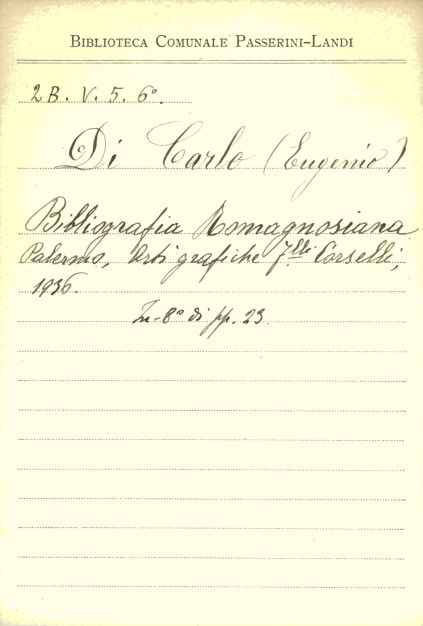 BIBLIOTECA COMUNALE PASSERINI-LANDI
2 B. V. 5. 6º.
Di Carlo (Eugenio)
Bibliografia Romagnosiana
Palermo, Arti grafiche F.lli Corselli,
1936.
In-8º di pp. 23